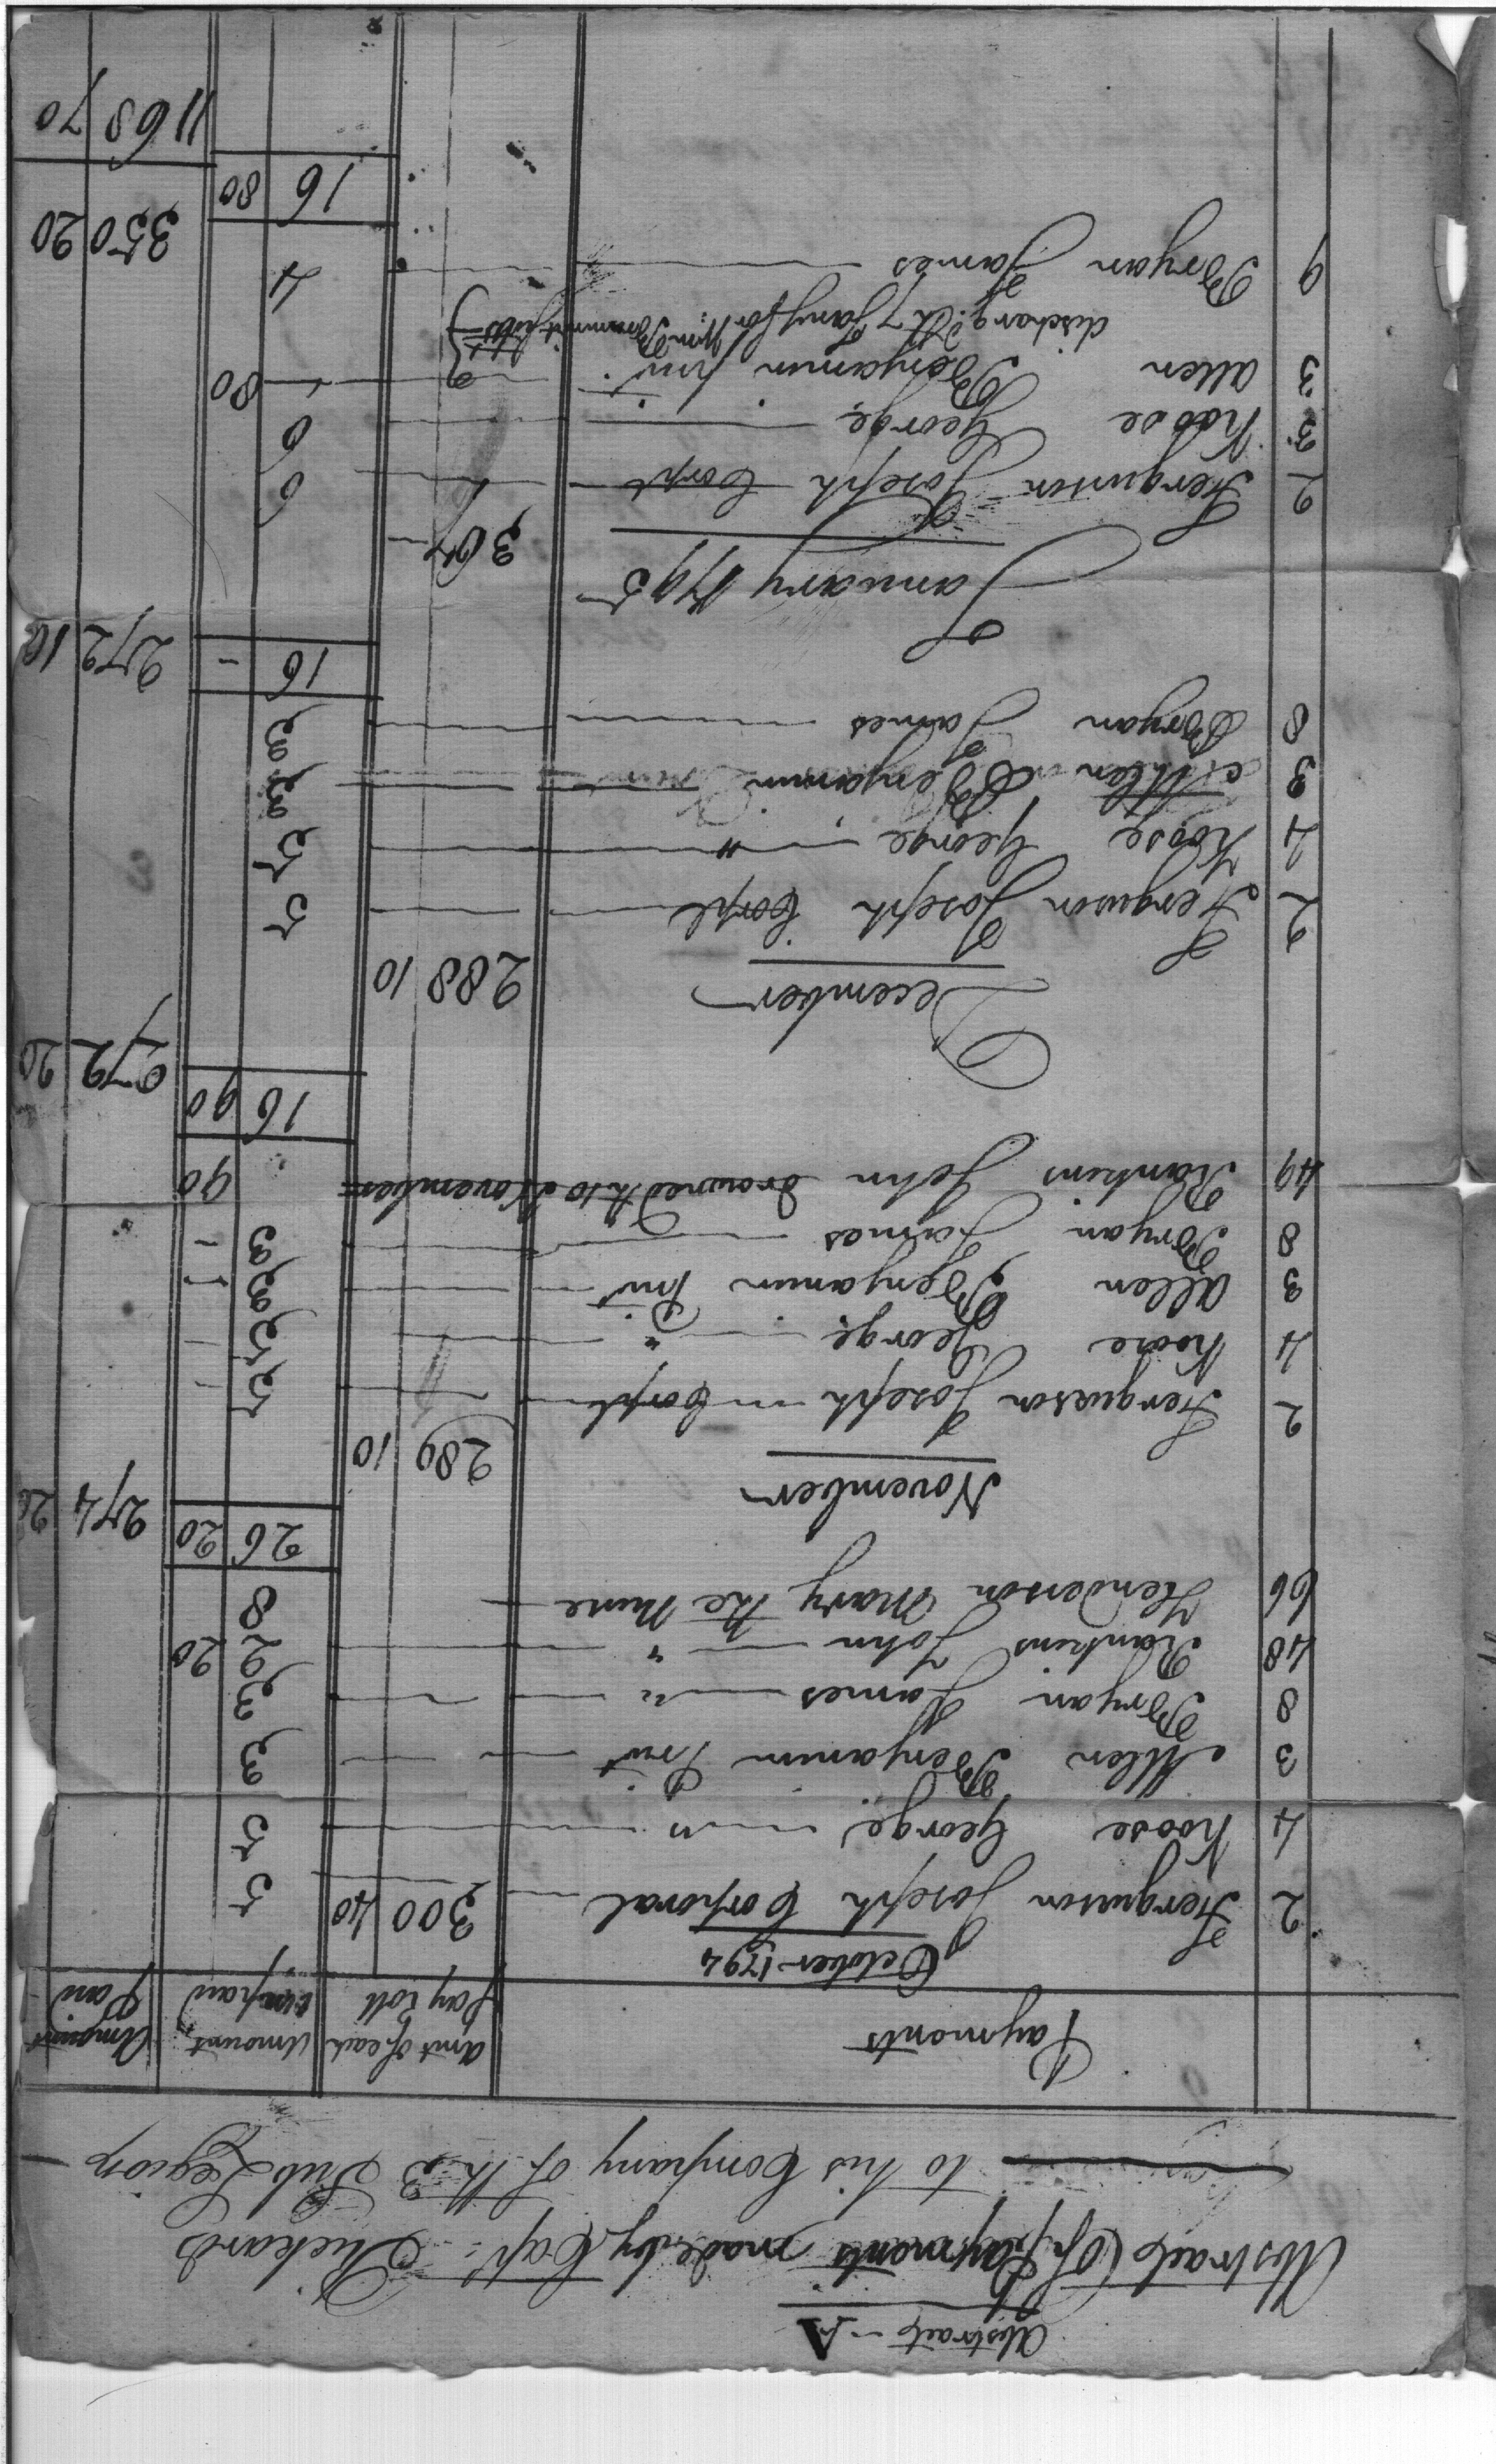 Abstract - A
Abstract Of Payments made by Capt: Pickard
to his Company of th 3 Sub Legion
Payments | Amt of each Pay roll | Amount unpaid | Amount Paid
October 1794
2 Ferguson Joseph Corporal 300 40 5
4 Koose George " 5
3 Allen Benjamin Privt 3
8 Bryan James " 3
48 Rankins John " 2 20
66 Henderson Mary the Nurse 8
26 20 274 20
November 289 10
2 Ferguson Joseph Corpl 5 -
4 Koose George " 5 -
3 Allen Benjamin Privt 3 -
8 Bryan James 3 -
49 Rankins John Drowned th 10 November 90
16 90 272 20
December 288 10
2 Ferguson Joseph Corpl 5
4 Koose George " 5
3 Allen Benjamin 3
8 Bryan James 3
16 - 272 10
January 1795 367 -
2 Ferguson Joseph Corpl 6
3 Koose George 6
3 Allen Benjamin privt 80
discharg'd th 7 Jany for
9 Bryan James 4
16 80 350 20
1168 70